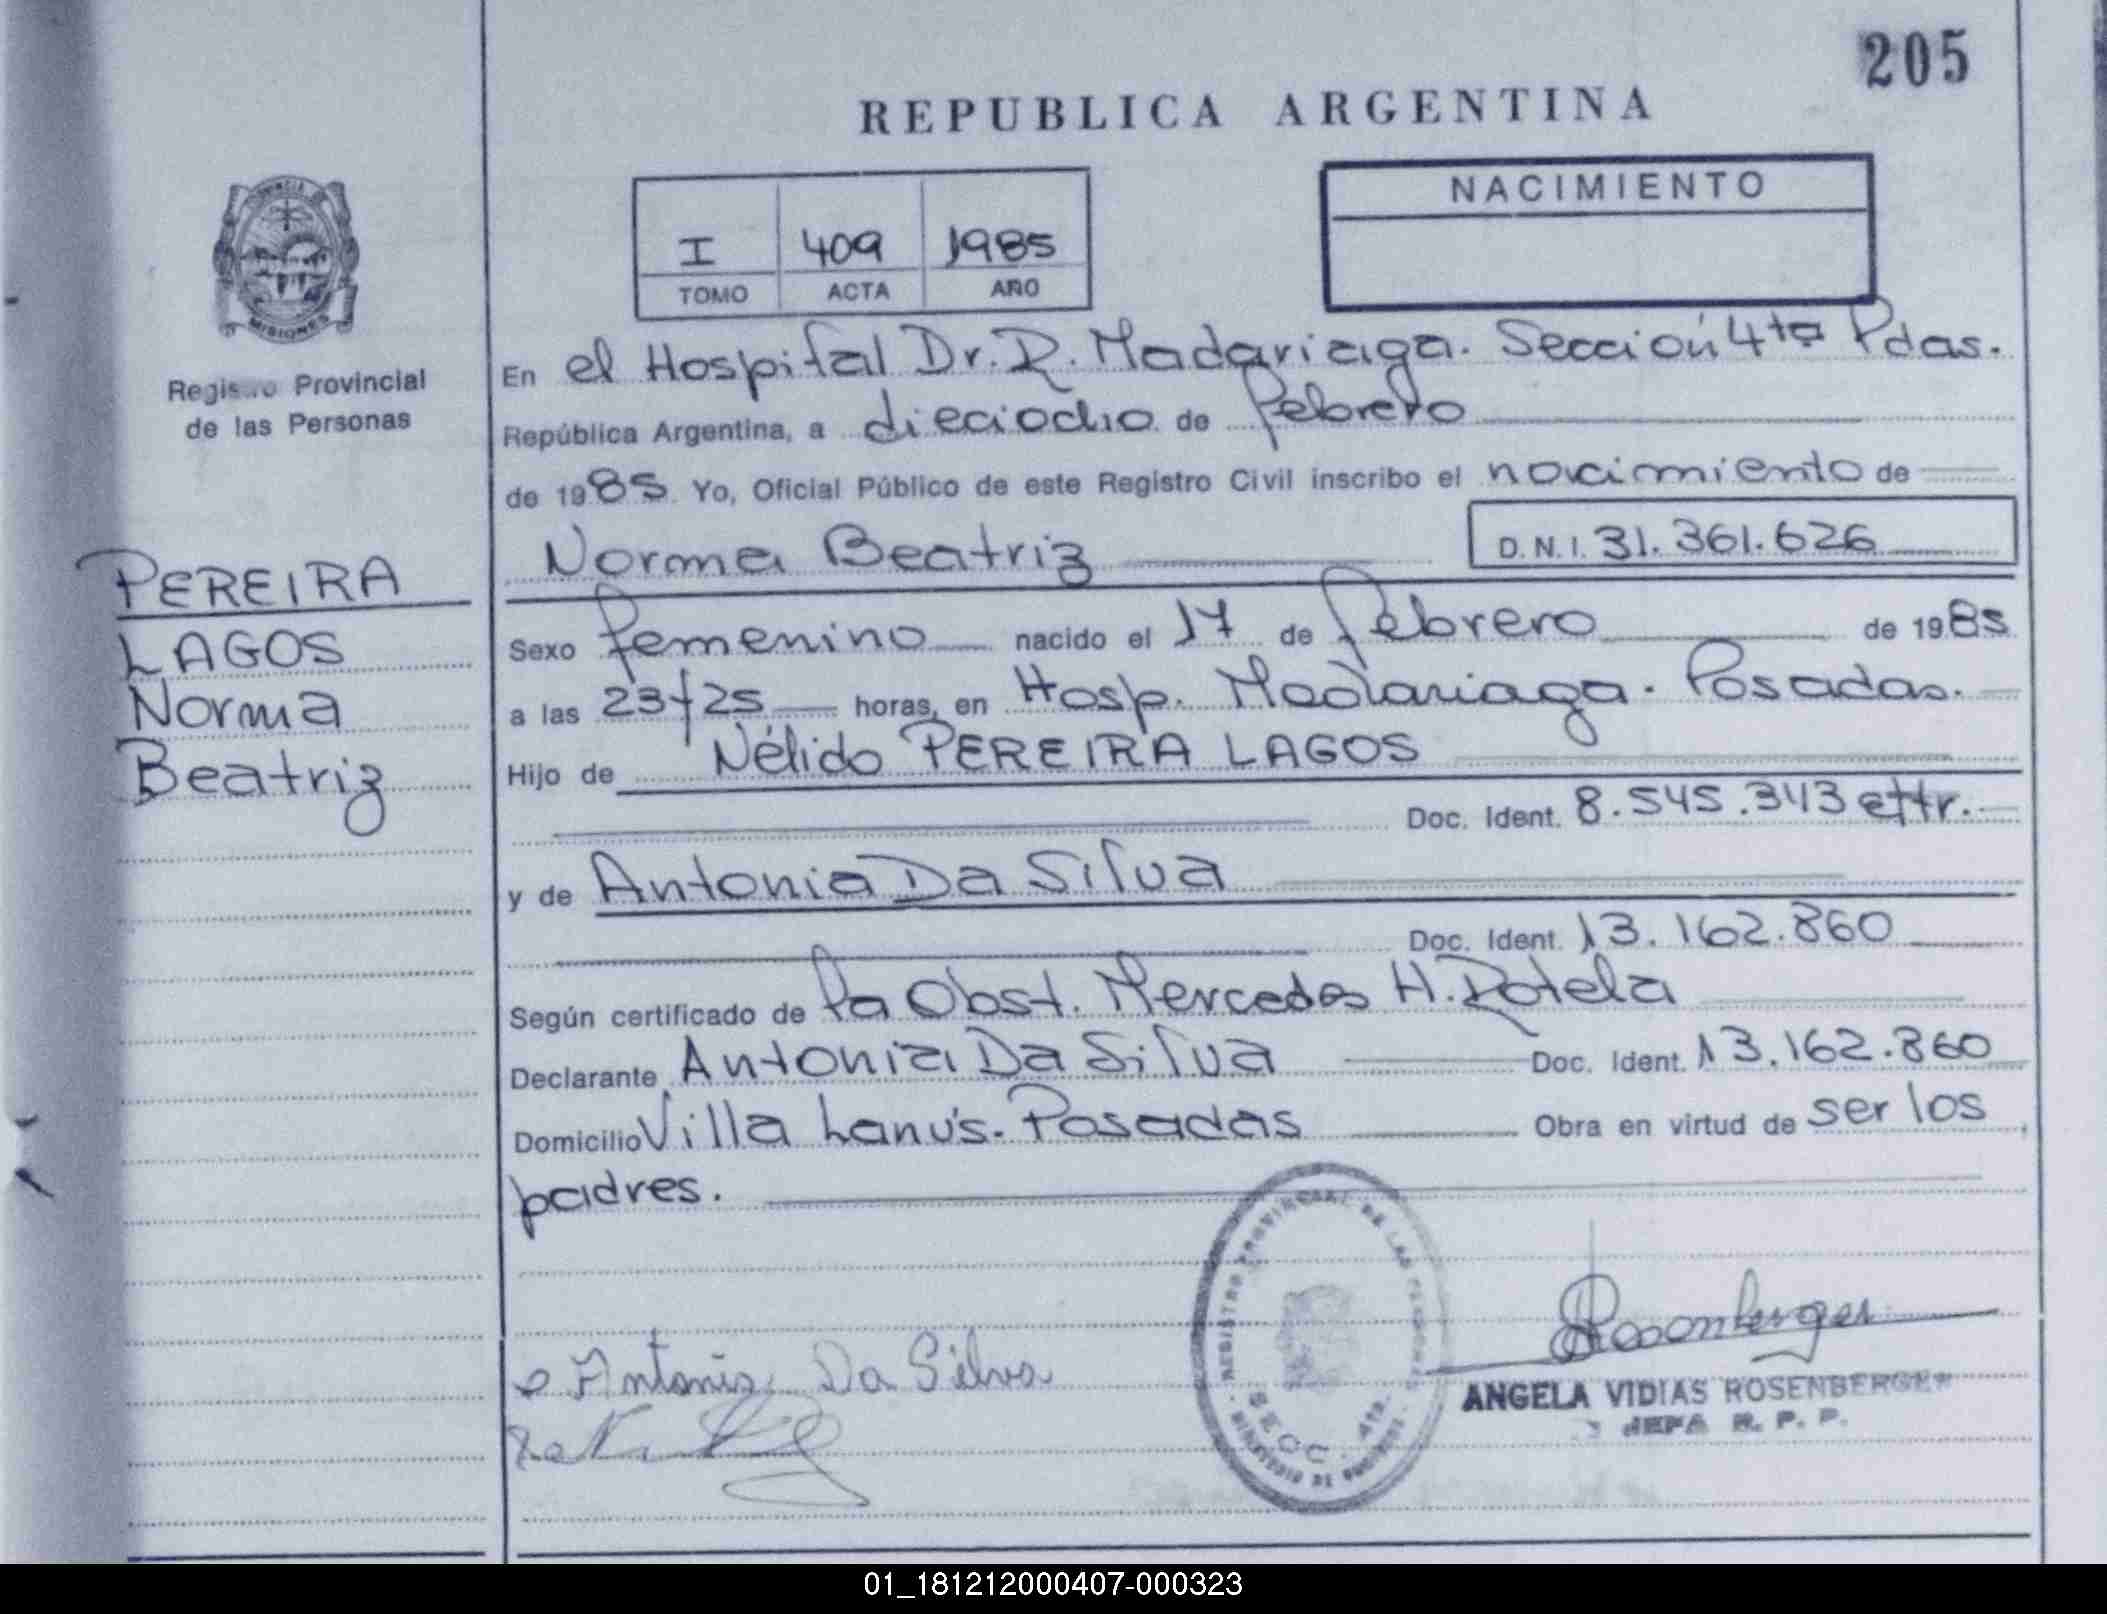 205
REPUBLICA ARGENTINA
I 409 1985
TOMO ACTA AÑO
NACIMIENTO
MISIONES
Registro Provincial
de las Personas
PEREIRA
LAGOS
Norma
Beatriz
En el Hospital Dr. R. Madariaga. Sección 4ta Pdas.
República Argentina, a dieciocho de febrero
de 1985 Yo, Oficial Público de este Registro Civil inscribo el nacimiento de
Norma Beatriz D.N.I. 31.361.626
Sexo femenino nacido el 17 de febrero de 1985
a las 23 y 25 horas, en Hosp. Madariaga. Posadas.
Hijo de Nélido PEREIRA LAGOS
Doc. Ident. 8.545.343 ettr.
y de Antonia Da Silva
Doc. Ident. 13.162.860
Según certificado de la Obst. Mercedes H. Rotela
Declarante Antonia Da Silva Doc. Ident. 13.162.860
Domicilio Villa Lanús. Posadas Obra en virtud de ser los
padres.
REGISTRO PROVINCIAL DE LAS PERSONAS
SECC. 4ta.
MINISTERIO DE GOBIERNO
Antonia Da Silva
Rosenberger
ANGELA VIDIAS ROSENBERGER
JEFA R. P. P.
01_181212000407-000323